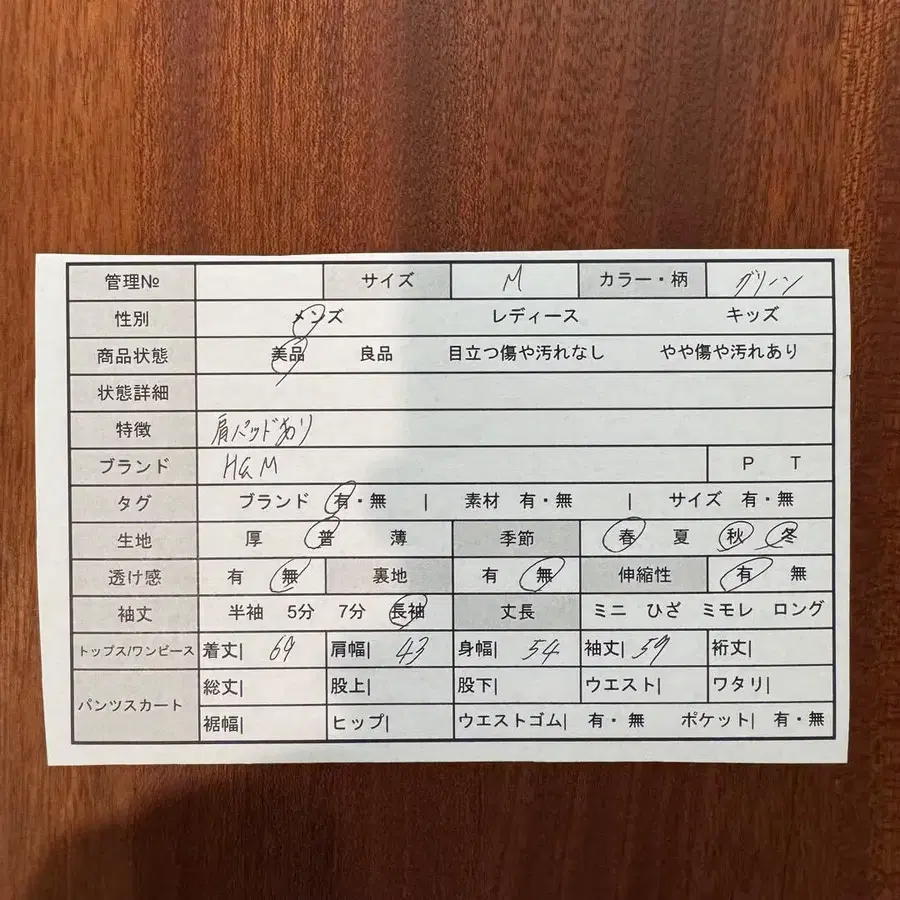 管理№ サイズ M カラー・柄 グリーン
性別 メンズ レディース キッズ
商品状態 美品 良品 目立つ傷や汚れなし やや傷や汚れあり
状態詳細
特徴 肩パッドあり
ブランド H&M P T
タグ ブランド 有・無 | 素材 有・無 | サイズ 有・無
生地 厚 普 薄 季節 春 夏 秋 冬
透け感 有 無 裏地 有 無 伸縮性 有 無
袖丈 半袖 5分 7分 長袖 丈長 ミニ ひざ ミモレ ロング
トップス/ワンピース 着丈| 69 肩幅| 43 身幅| 54 袖丈| 59 裄丈|
パンツスカート 総丈| 股上| 股下| ウエスト| ワタリ|
裾幅| ヒップ| ウエストゴム| 有・無 ポケット| 有・無